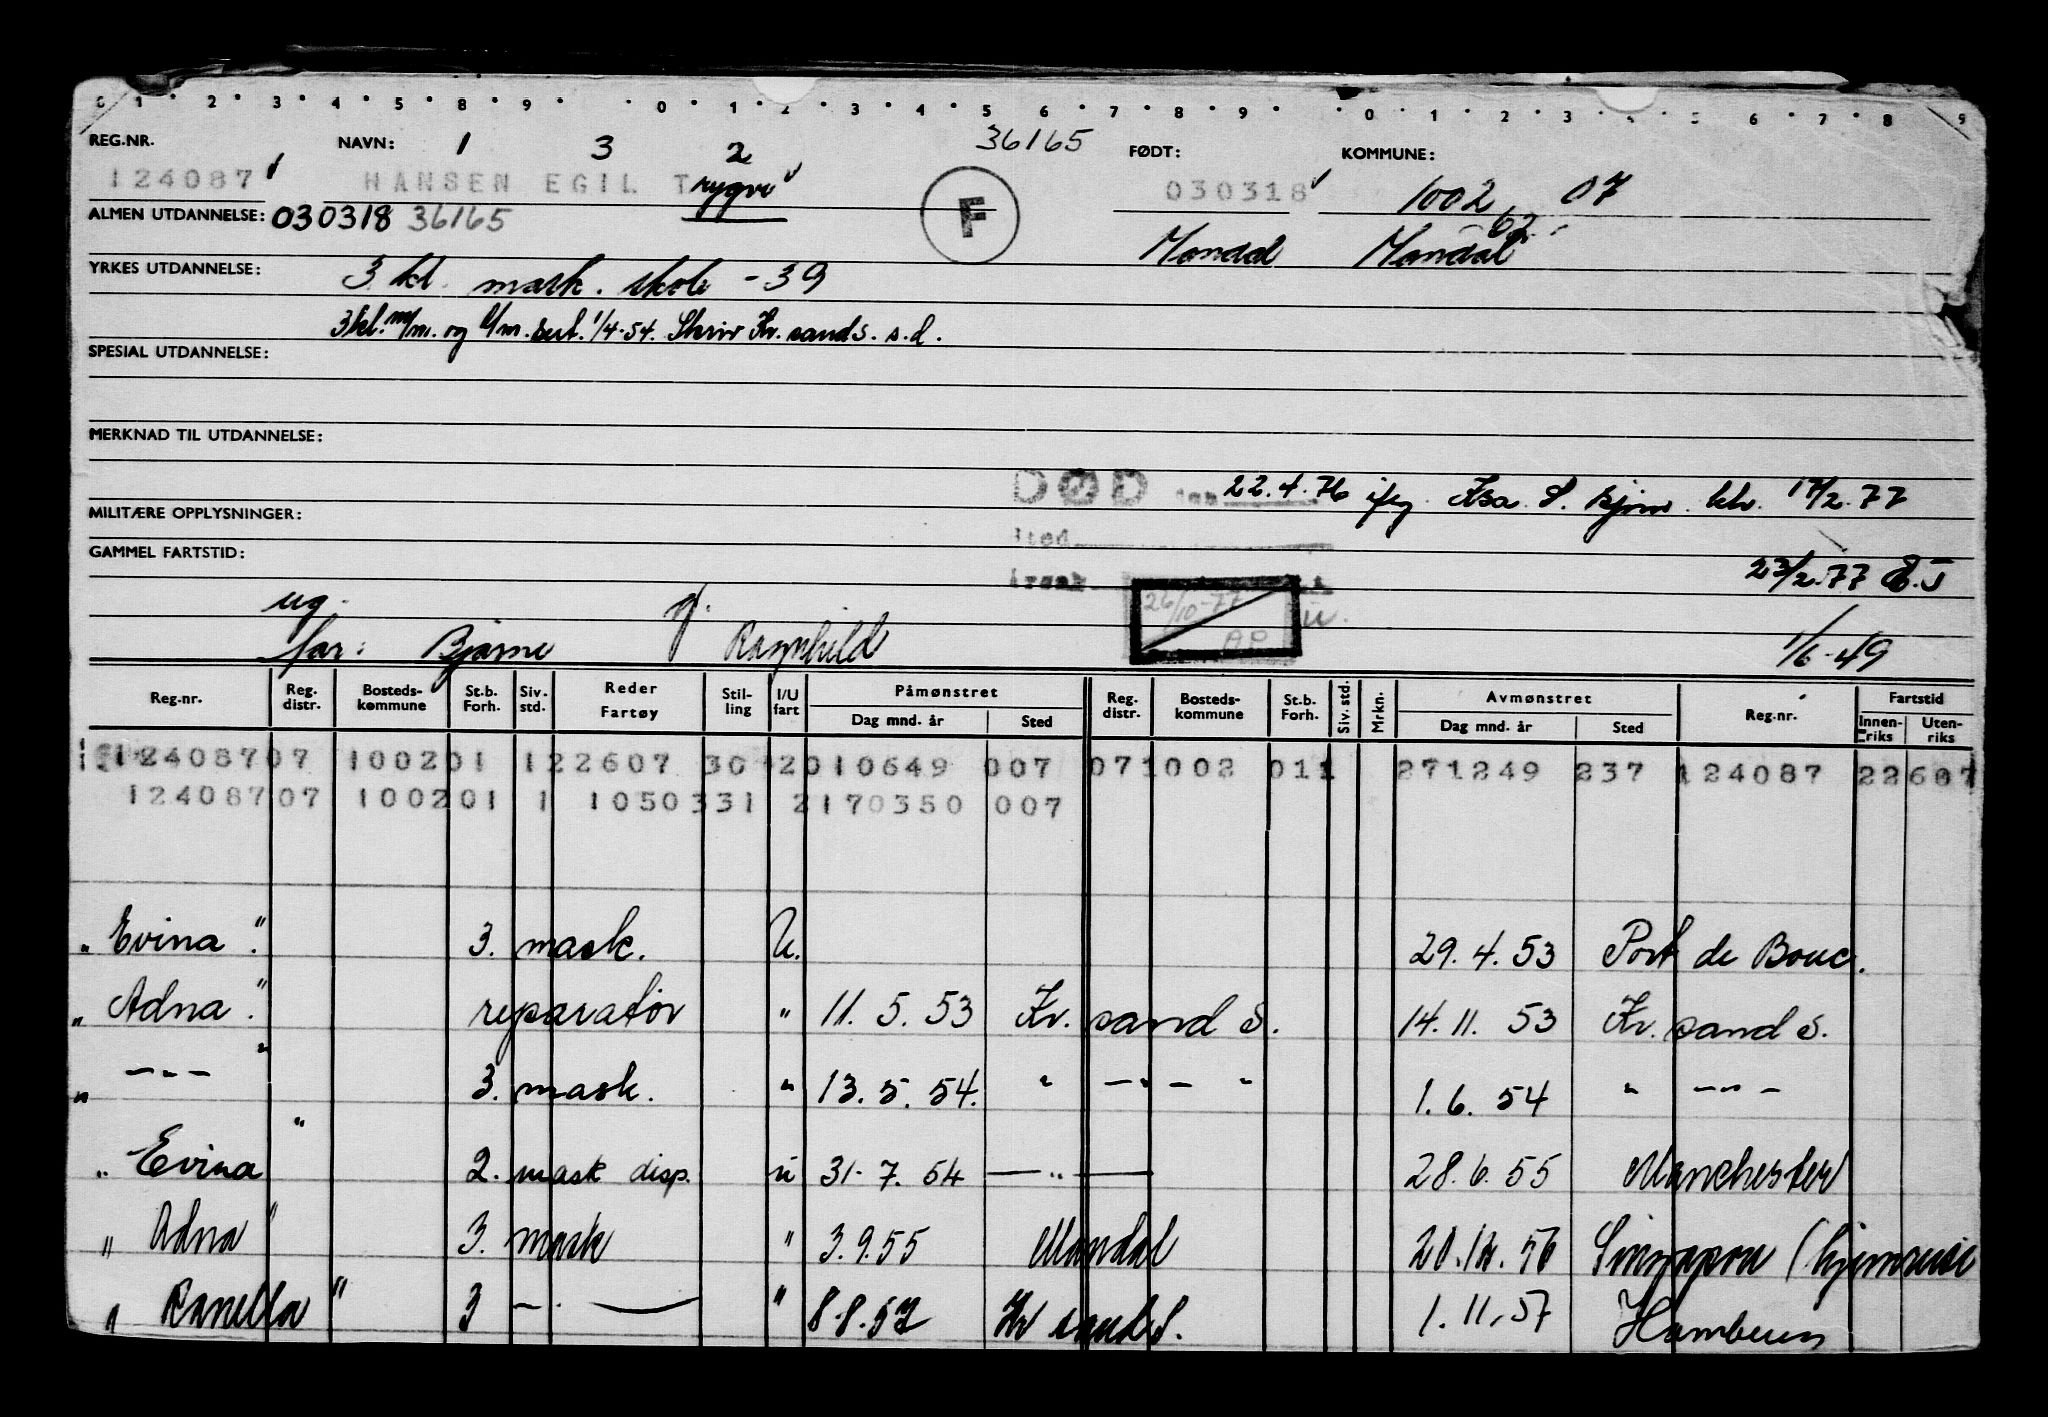 0 1 2 3 4 5 8 9 0 1 2 3 4 5 6 7 8 9 0 1 2 3 5 6 7 8 9
REG.NR. NAVN: 1 3 2 36165 FØDT: KOMMUNE:
124087 HANSEN EGIL Trygve 030318 1002 07
ALMEN UTDANNELSE: 030318 36165 F 62
Mandal Mandal
YRKES UTDANNELSE: 3 kl. mask. skole - 39
3 kl. m/m. og t/m. sert. 1/4-54. Skriv Kr. sand S. s.d.
SPESIAL UTDANNELSE:
MERKNAD TIL UTDANNELSE:
DØD den 22.4.76 ifg. Kr.sa. S. skjem. kv. 17/2.77
MILITÆRE OPPLYSNINGER: Sted
GAMMEL FARTSTID: Årsak 23/2.77 E.J
ug. g. 26/10-77 AP u.
far: Bjarne Ragnhild 1/6-49
Reg.nr. Reg. distr. Bosteds-kommune St.b. Forh. Siv. std. Reder Fartøy Stil-ling I/U fart Påmønstret Dag mnd. år Sted Reg. distr. Bosteds-kommune St.b. Forh. Siv. std. Mrkn. Avmønstret Dag mnd. år Sted Reg.nr. Fartstid Innen-riks Uten-riks
12408707 100201 122607 30 2010649 007 071002 011 271249 237 124087 22607
12408707 100201 1 1050331 2170350 007
" Evina " 3. mask. U. 29.4.53 Port de Bouc.
" Adna " reparatør " 11.5.53 Kr. sand S. 14.11.53 Kr. sand S.
" -"- " 3. mask. " 13.5.54. " -"- " 1.6.54 " -"-
" Evina " 2. mask disp. u 31-7.54 -"- 28.6.55 Manchester
" Adna " 3. mask " 3.9.55 Mandal 56 Singapore (hjemreise
" Ranella " 3 -"- " 8-8.57 Kr sand S. 1.11.57 Hamburg